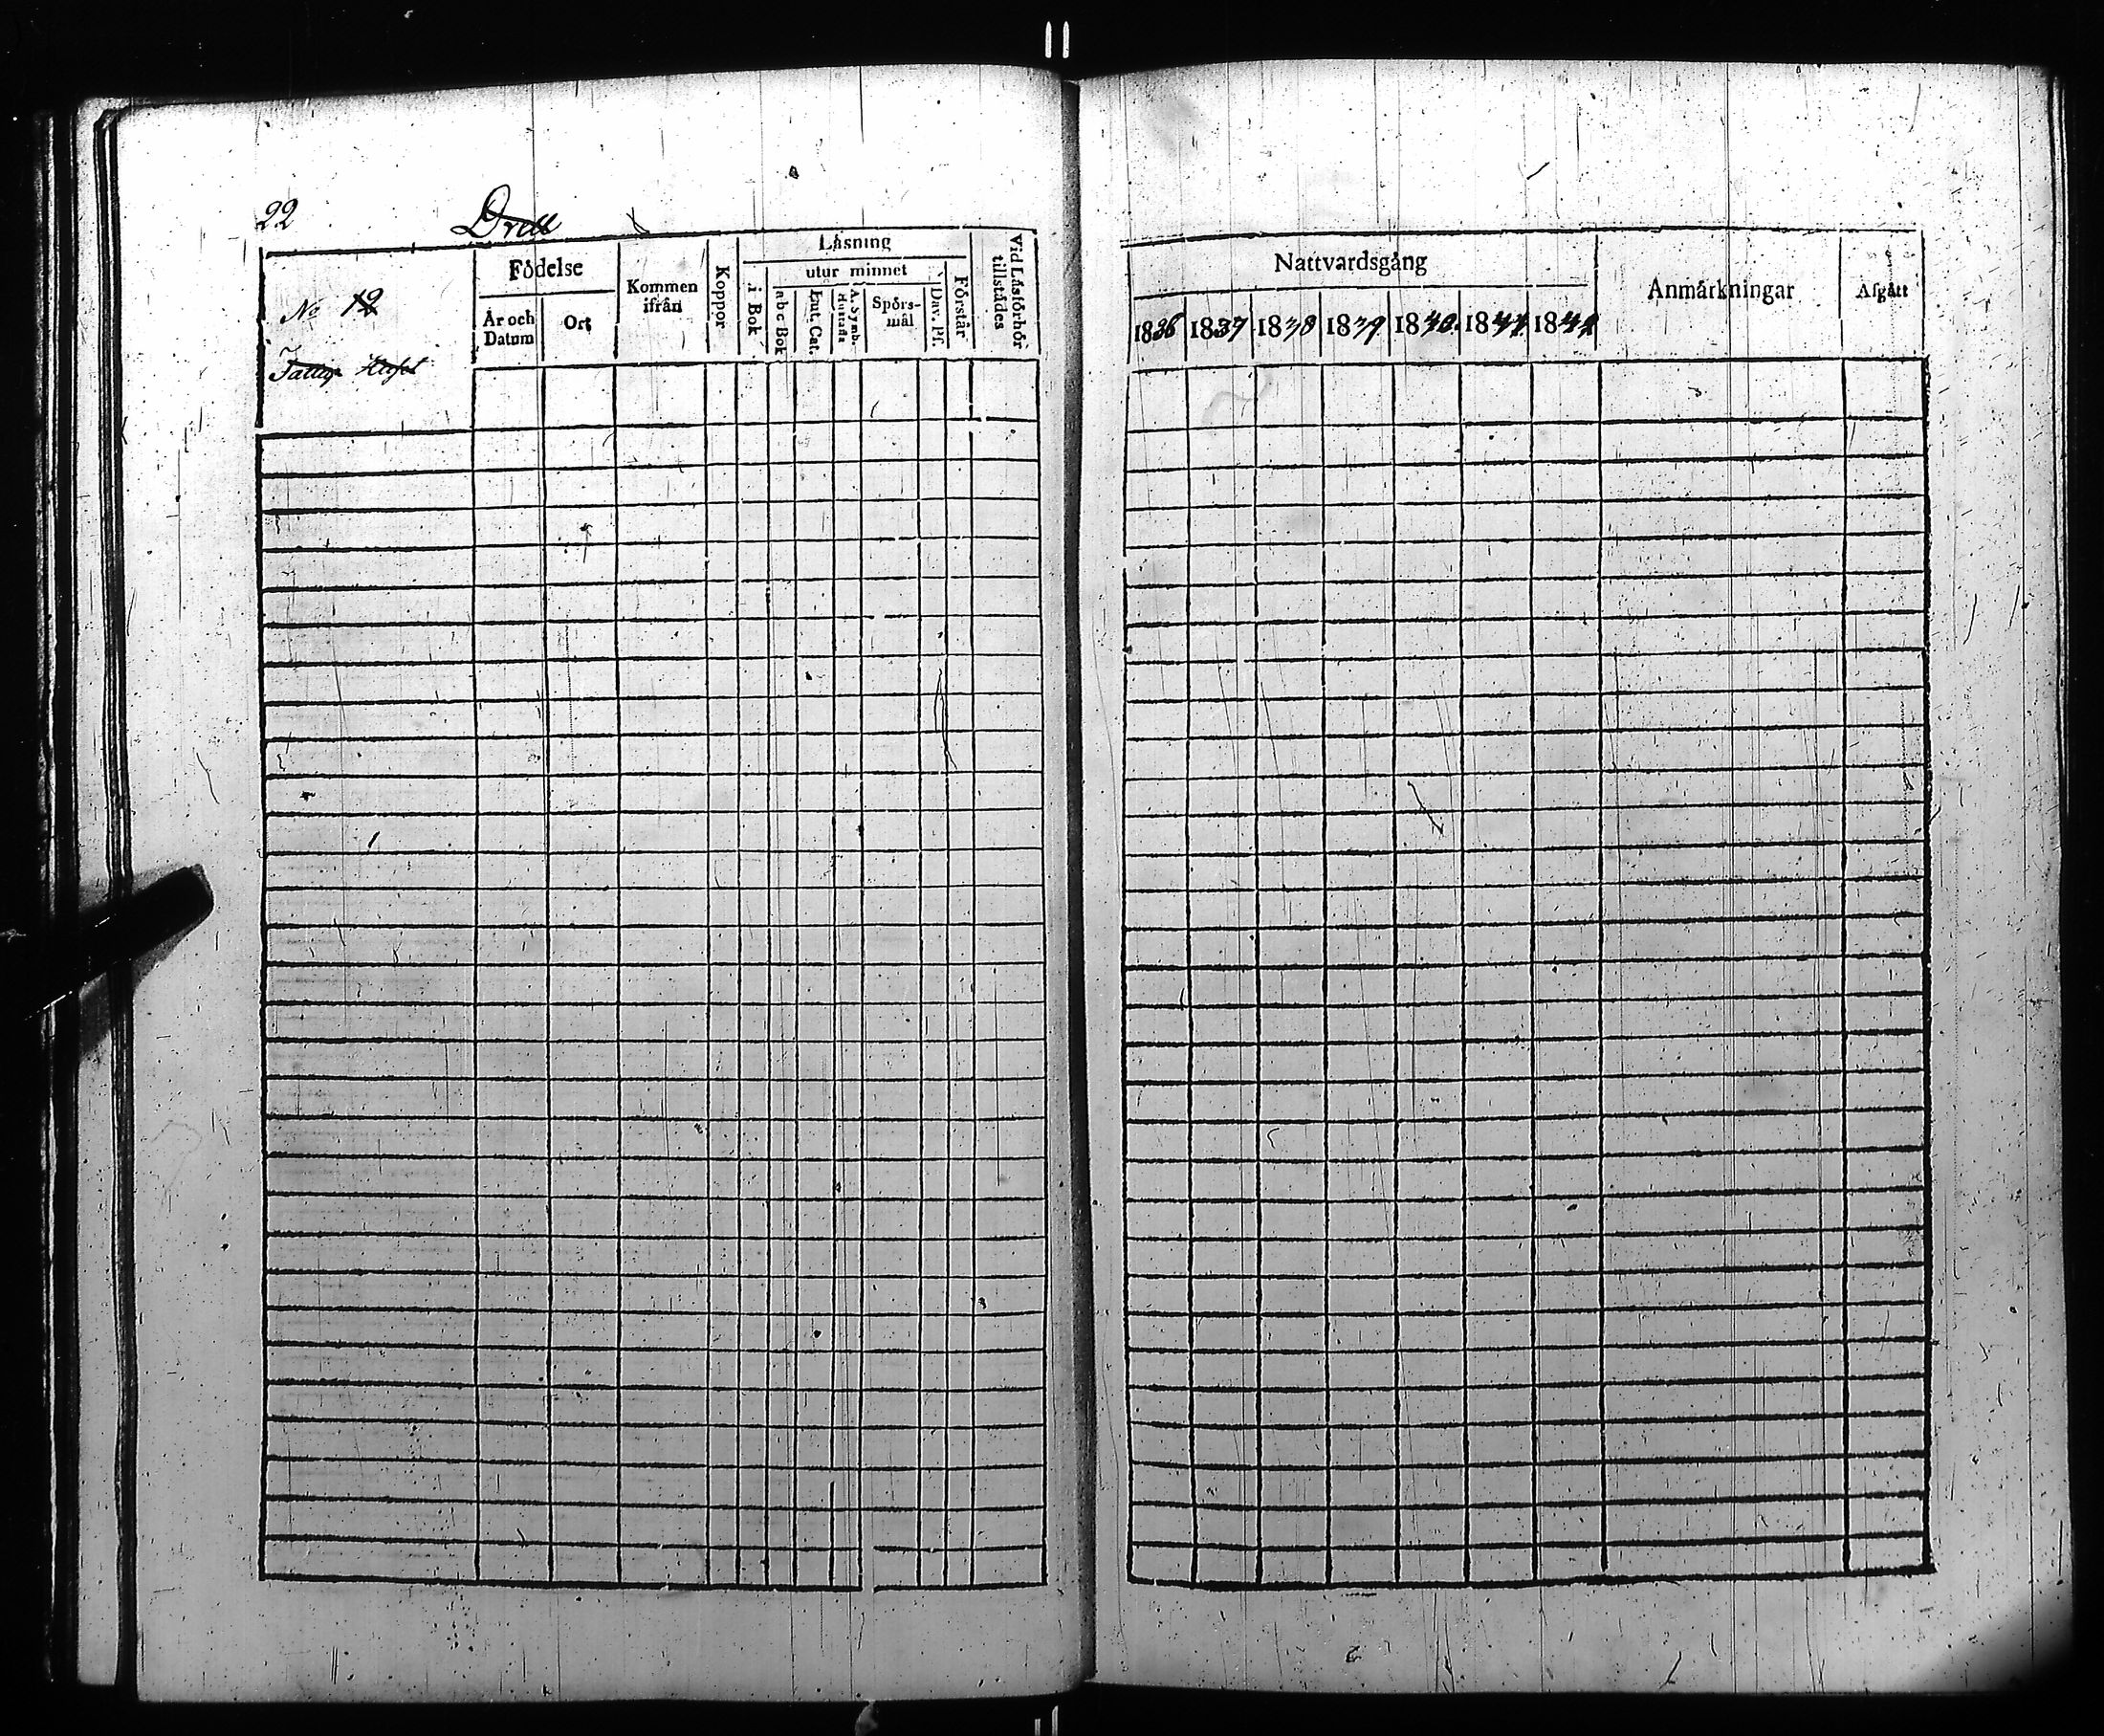 22
Drell
No 12
Fattig Huset
Födelse
År och Datum
Ort
Kommen ifrån
Koppor
Läsning
i Bok
utur minnet
abc Bok
Lut. Cat.
A. Symb. Hustafla
Spörs-mål
Dav. Ps.
Förstår
Vid Läsförhör tillstädes
Nattvardsgång
1836 1837 1838 1839 1840. 1841 1842
Anmärkningar
Afgått